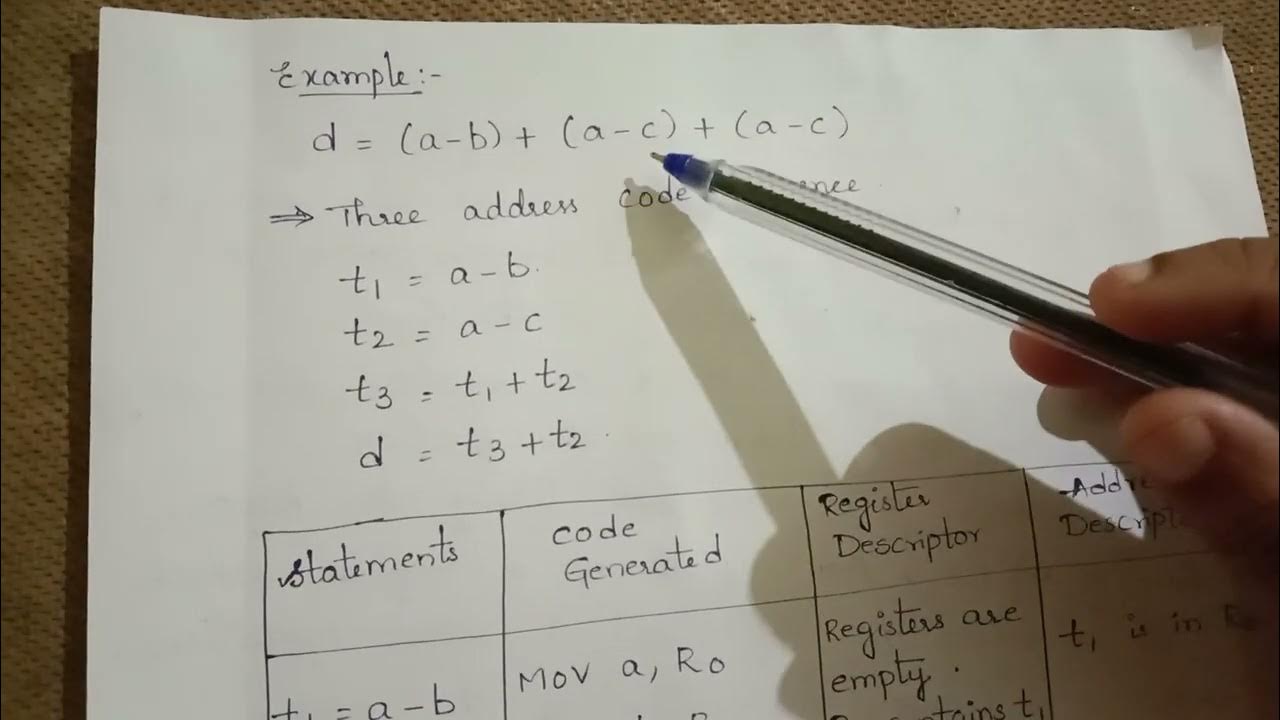 Example:-
d = (a-b) + (a-c) + (a-c)
⇒ Three address code
t1 = a-b.
t2 = a-c
t3 = t1+t2
d = t3+t2.
Statements
code
Generated
Register
Descriptor
t1 = a-b
MOV a, R0
Registers are
empty.
t1
t1 is in